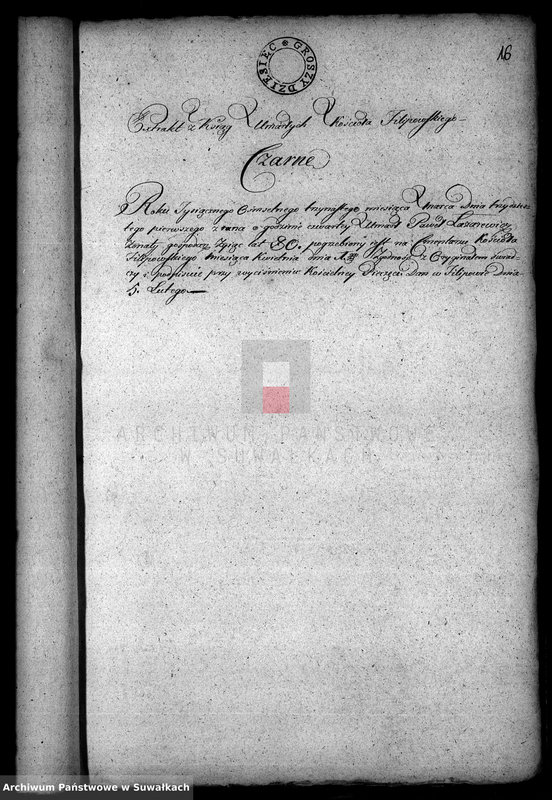 16
DZIESIĘC GROSZY
Extrakt z Ksiąg Umarłych Kościoła Filipowskiego
Czarne
Roku Tysiącznego Ośmsetnego trzynastego miesiąca Marca Dnia trzydzies
tego pierwszego z rana o godzinie czwartey Umarł Paweł Łazarewicz
żonaty gospodarz żyiąc lat 80. pogrzebiony iest na Cmentarzu Kościoła
Filipowskiego miesiąca Kwietnia dnia z Oryginałem świad-
czy i Podpisuie przy wyciśnieniu Kościelney Pieczęci Dan w Filipowie Dnia
5. Lutego
ARCHIWUM PAŃSTWOWE
W SUWAŁKACH
Archiwum Państwowe w Suwałkach